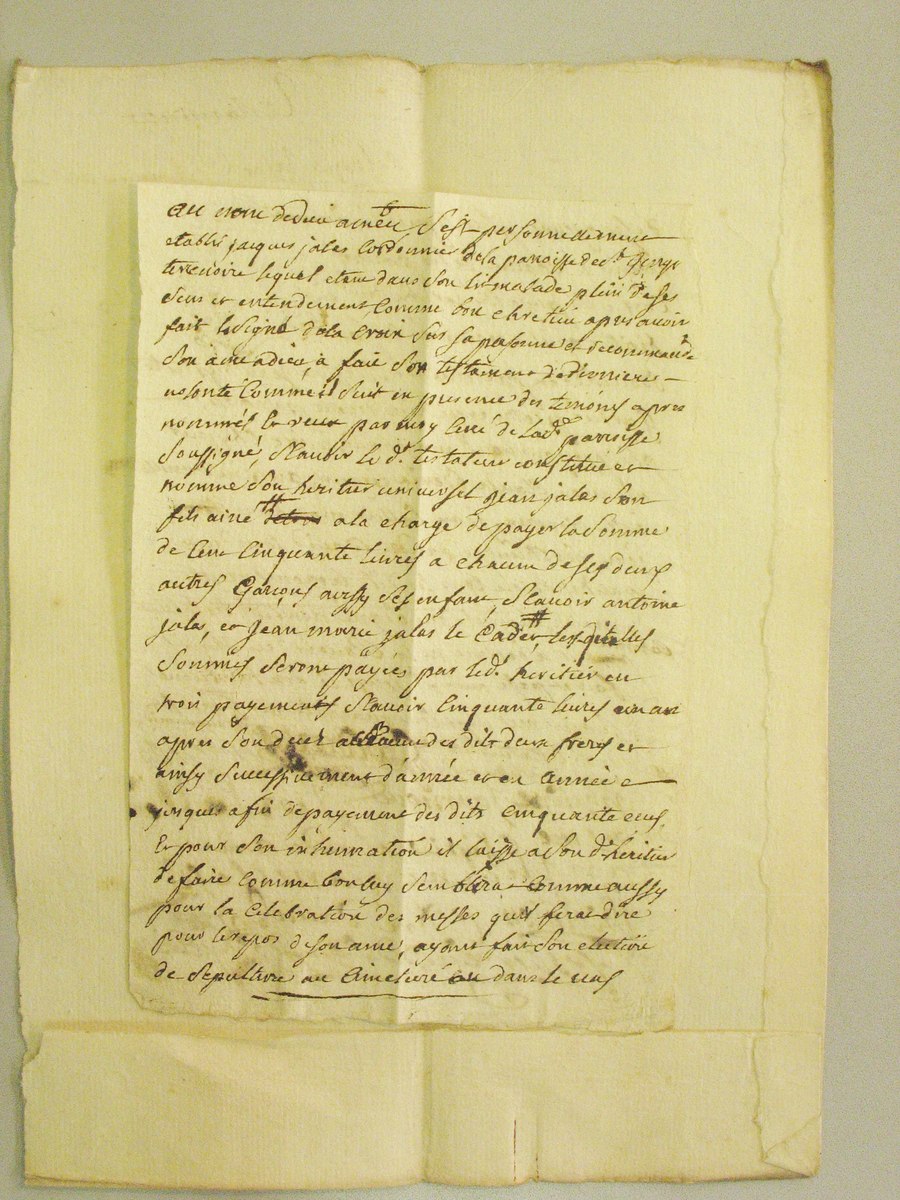 au nom de dieu amen, S'est personnelement
etabli jacques jalas Cordonnier de la paroisse de St.
terrenoire lequel etant dans Son lit malade plein de ses
Sens et entendement Comme bon chretien apres avoir
fait le signe de la Croix Sur sa personne et recommandé
Son ame a dieu, a fait Son testament de derniere
volonté Comme il Suit en presence des temoins apres
nommés et receu par moy Curé de lad. paroisse
Soussigné, Scavoir led. testateur constitue et
nomme Son heritier universel jean jalas Son
fils ainé a la charge de payer la Somme
de Cent Cinquante livres a chacun de ses deux
autres Garçons aussy ses enfant, Scavoir antoine
jalas, et jean marie jalas le Cadet, lesquelles
Sommes Seront payées par led. heritier en
trois payements Scavoir Cinquante livres un an
apres Son decés a chacun des dits deux freres et
ainsy Successivement d'année en année
jusques a fin de payement des dits Cinquante ecus,
Et pour Son inhumation il laisse a Son d. heritier
de faire Comme bon luy Semblera Comme aussy
pour la Celebration des messes qu'il fera dire
pour le repos de Son ame, ayant fait Son election
de Sepulture au Cimetiere ou dans le